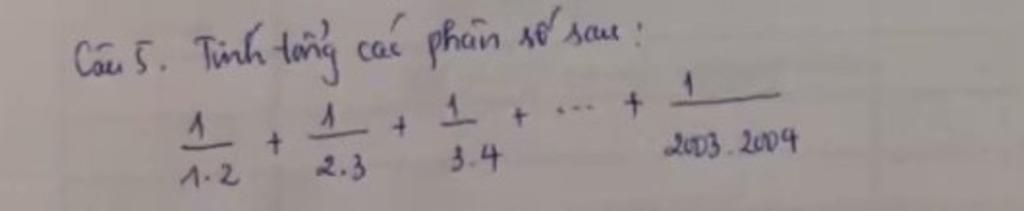 Câu 5. Tính tổng các phân số sau:
1/1.2 + 1/2.3 + 1/3.4 + ... + 1/2003.2004